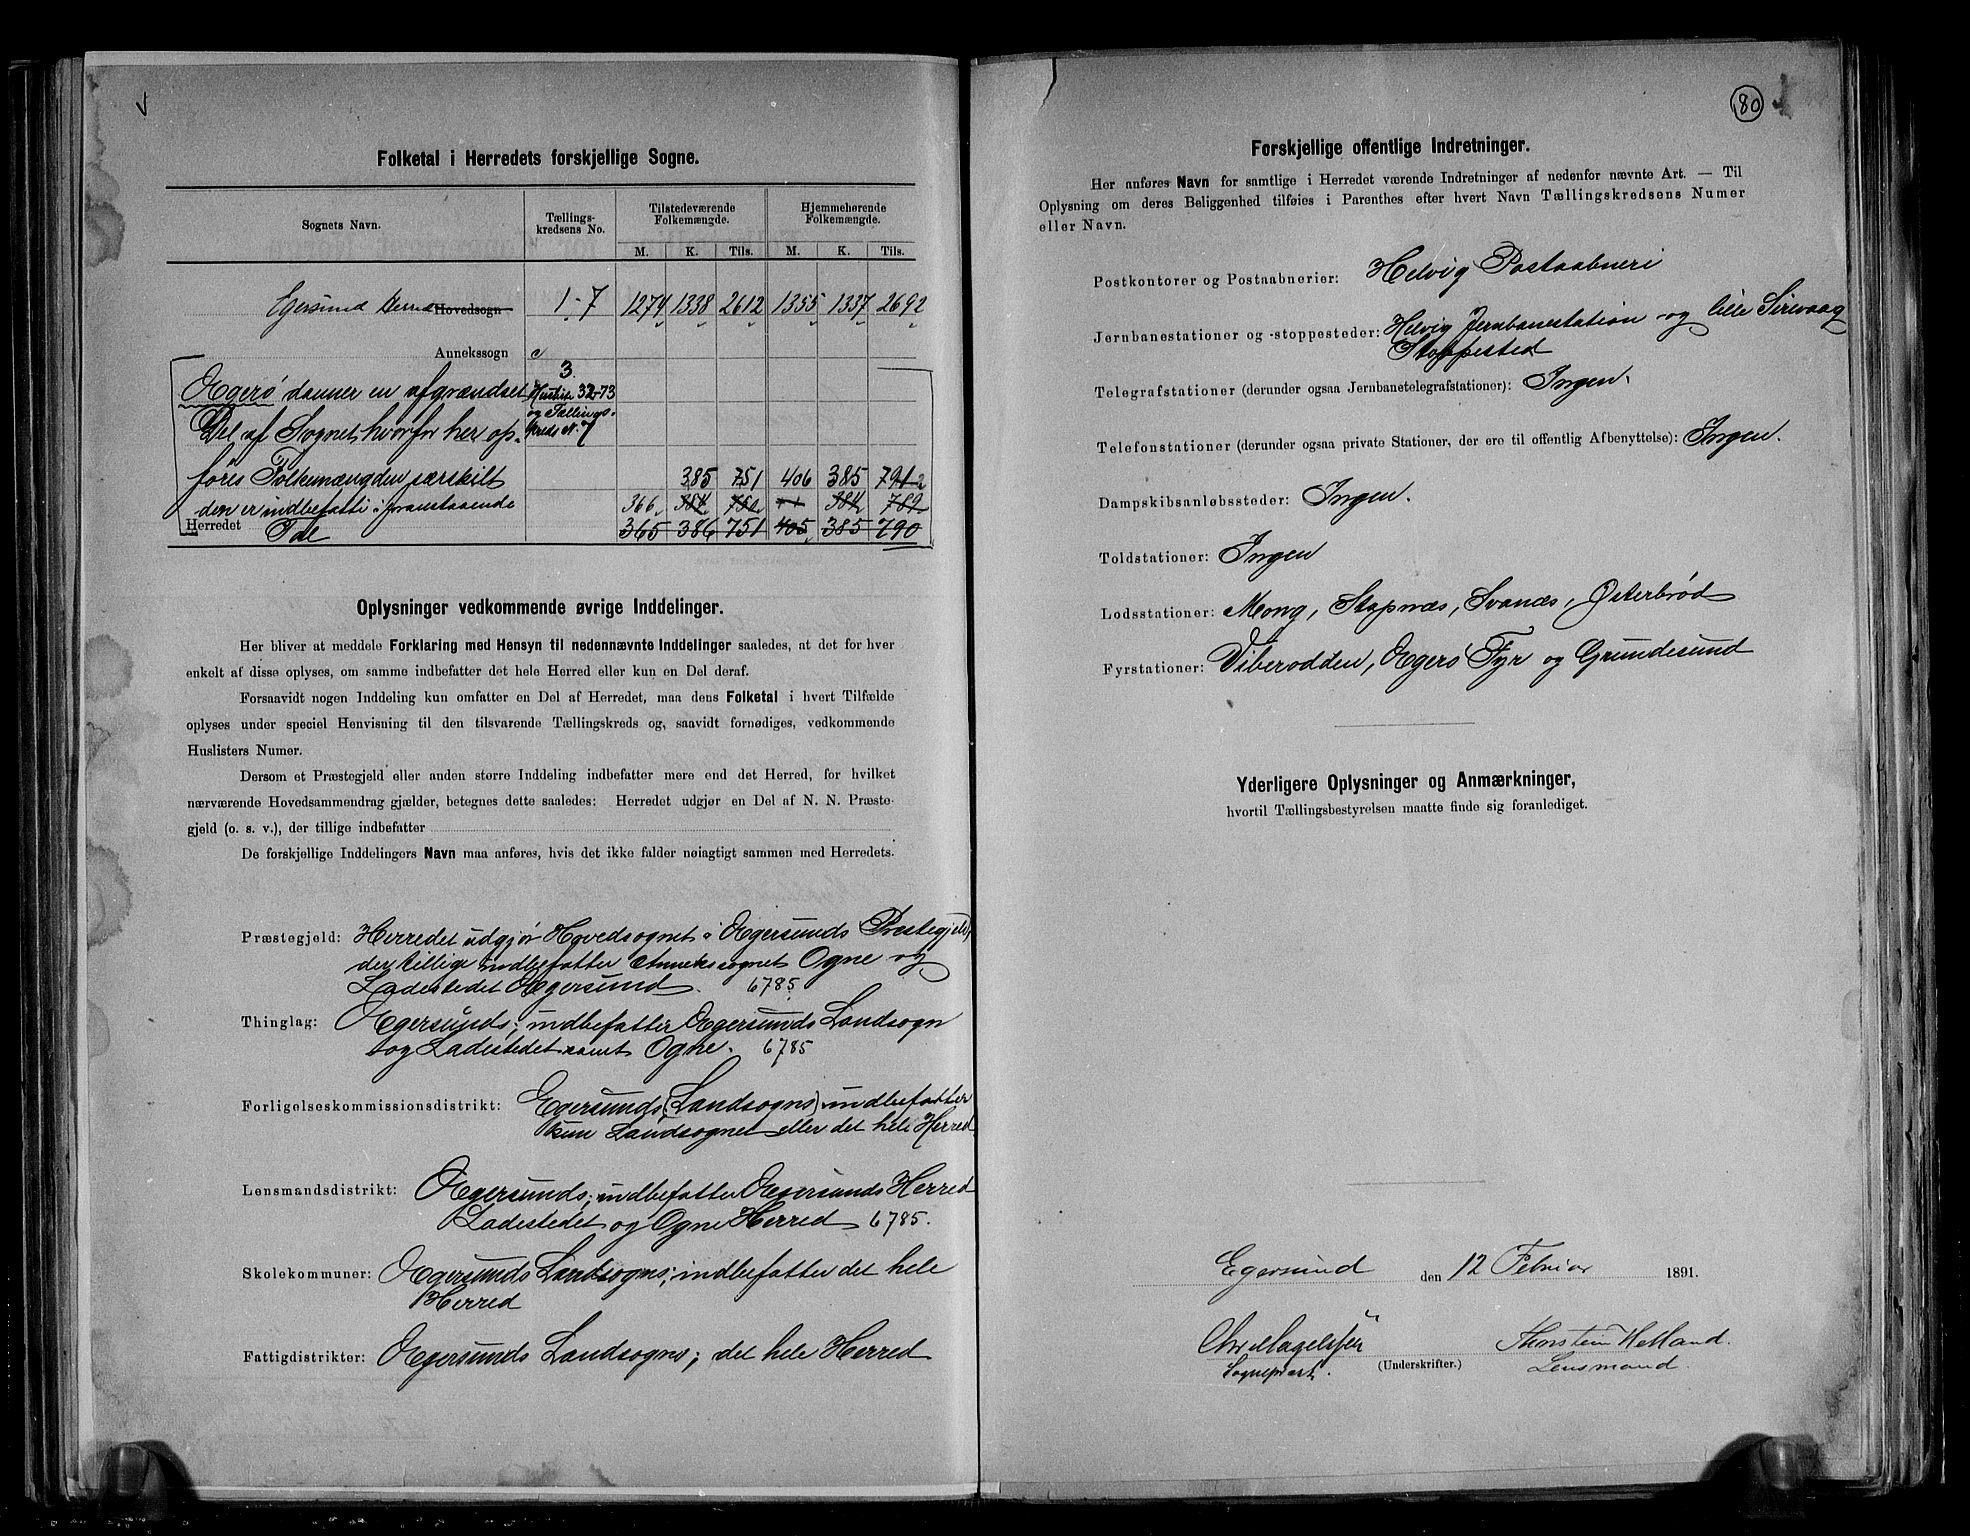 Folketal i Herredets forskjellige Sogne.
Sognets Navn.
Tællings-
kredsens No.
Tilstedeværende
Folkemængde.
Hjemmehørende
Folkemængde.
M. K. Tils. M. K. Tils.
Egersund Herred Hovedsogn 1-7 1274 1338 2612 1355 1337 2692
Annekssogn
3.
Ægerø danner en afgrændset Huslister 32-73
og Tællings-
Del af Sognet hvorfor her op- kreds N. 7
føres Folkemængden særskilt 385 751 406 385 791
den er indbefattet i foranstaaende 366 384 750 384 789
Herredet 365 386 751 405 385 790
Oplysninger vedkommende øvrige Inddelinger.
Her bliver at meddele Forklaring med Hensyn til nedennævnte Inddelinger saaledes, at det for hver
enkelt af disse oplyses, om samme indbefatter det hele Herred eller kun en Del deraf.
Forsaavidt nogen Inddeling kun omfatter en Del af Herredet, maa dens Folketal i hvert Tilfælde
oplyses under speciel Henvisning til den tilsvarende Tællingskreds og, saavidt fornødiges, vedkommende
Huslisters Numer.
Dersom et Præstegjeld eller anden større Inddeling indbefatter mere end det Herred, for hvilket
nærværende Hovedsammendrag gjælder, betegnes dette saaledes: Herredet udgjør en Del af N. N. Præste-
gjeld (o. s. v.), der tillige indbefatter
De forskjellige Inddelingers Navn maa anføres, hvis det ikke falder nøiagtigt sammen med Herredets.
Præstegjeld: Herredet udgjør Hovedsognet i Ægersunds Prestegjeld,
der tillige indbefatter Annekssognet Ogne og
Ladestedet Ægersund. 6785
Thinglag: Ægersunds; indbefatter Ægersunds Landsogn
og Ladestedet samt Ogne. 6785
Forligelseskommissionsdistrikt: Egersunds (Landsogns) indbefatter
kun Landsognet eller det hele Herred
Lensmandsdistrikt: Ægersunds; indbefatter Ægersunds Herred
Ladestedet og Ogne Herred 6785.
Skolekommuner: Ægersunds Landsogns; indbefatter det hele
Herred
Fattigdistrikter: Ægersunds Landsogns; det hele Herred
80
Forskjellige offentlige Indretninger.
Her anføres Navn for samtlige i Herredet værende Indretninger af nedenfor nævnte Art. — Til
Oplysning om deres Beliggenhed tilføies i Parenthes efter hvert Navn Tællingskredsens Numer
eller Navn.
Postkontorer og Postaabnerier: Helvig Postaabneri
Jernbanestationer og -stoppesteder: Helvig Jernbanestation og lille Sirevaag
Stoppested
Telegrafstationer (derunder ogsaa Jernbanetelegrafstationer): Ingen.
Telefonstationer (derunder ogsaa private Stationer, der ere til offentlig Afbenyttelse): Ingen.
Dampskibsanløbssteder: Ingen.
Toldstationer: Ingen
Lodsstationer: Mong, Stapnæs, Svanæs, Østerbrød
Fyrstationer: Viberodden, Ægerø Fyr og Grundesund
Yderligere Oplysninger og Anmærkninger,
hvortil Tællingsbestyrelsen maatte finde sig foranlediget.
Egersund den 12 Februar 1891.
Chr. Magelssen Helland.
Sogneprest. (Underskrifter.) Lensmand.